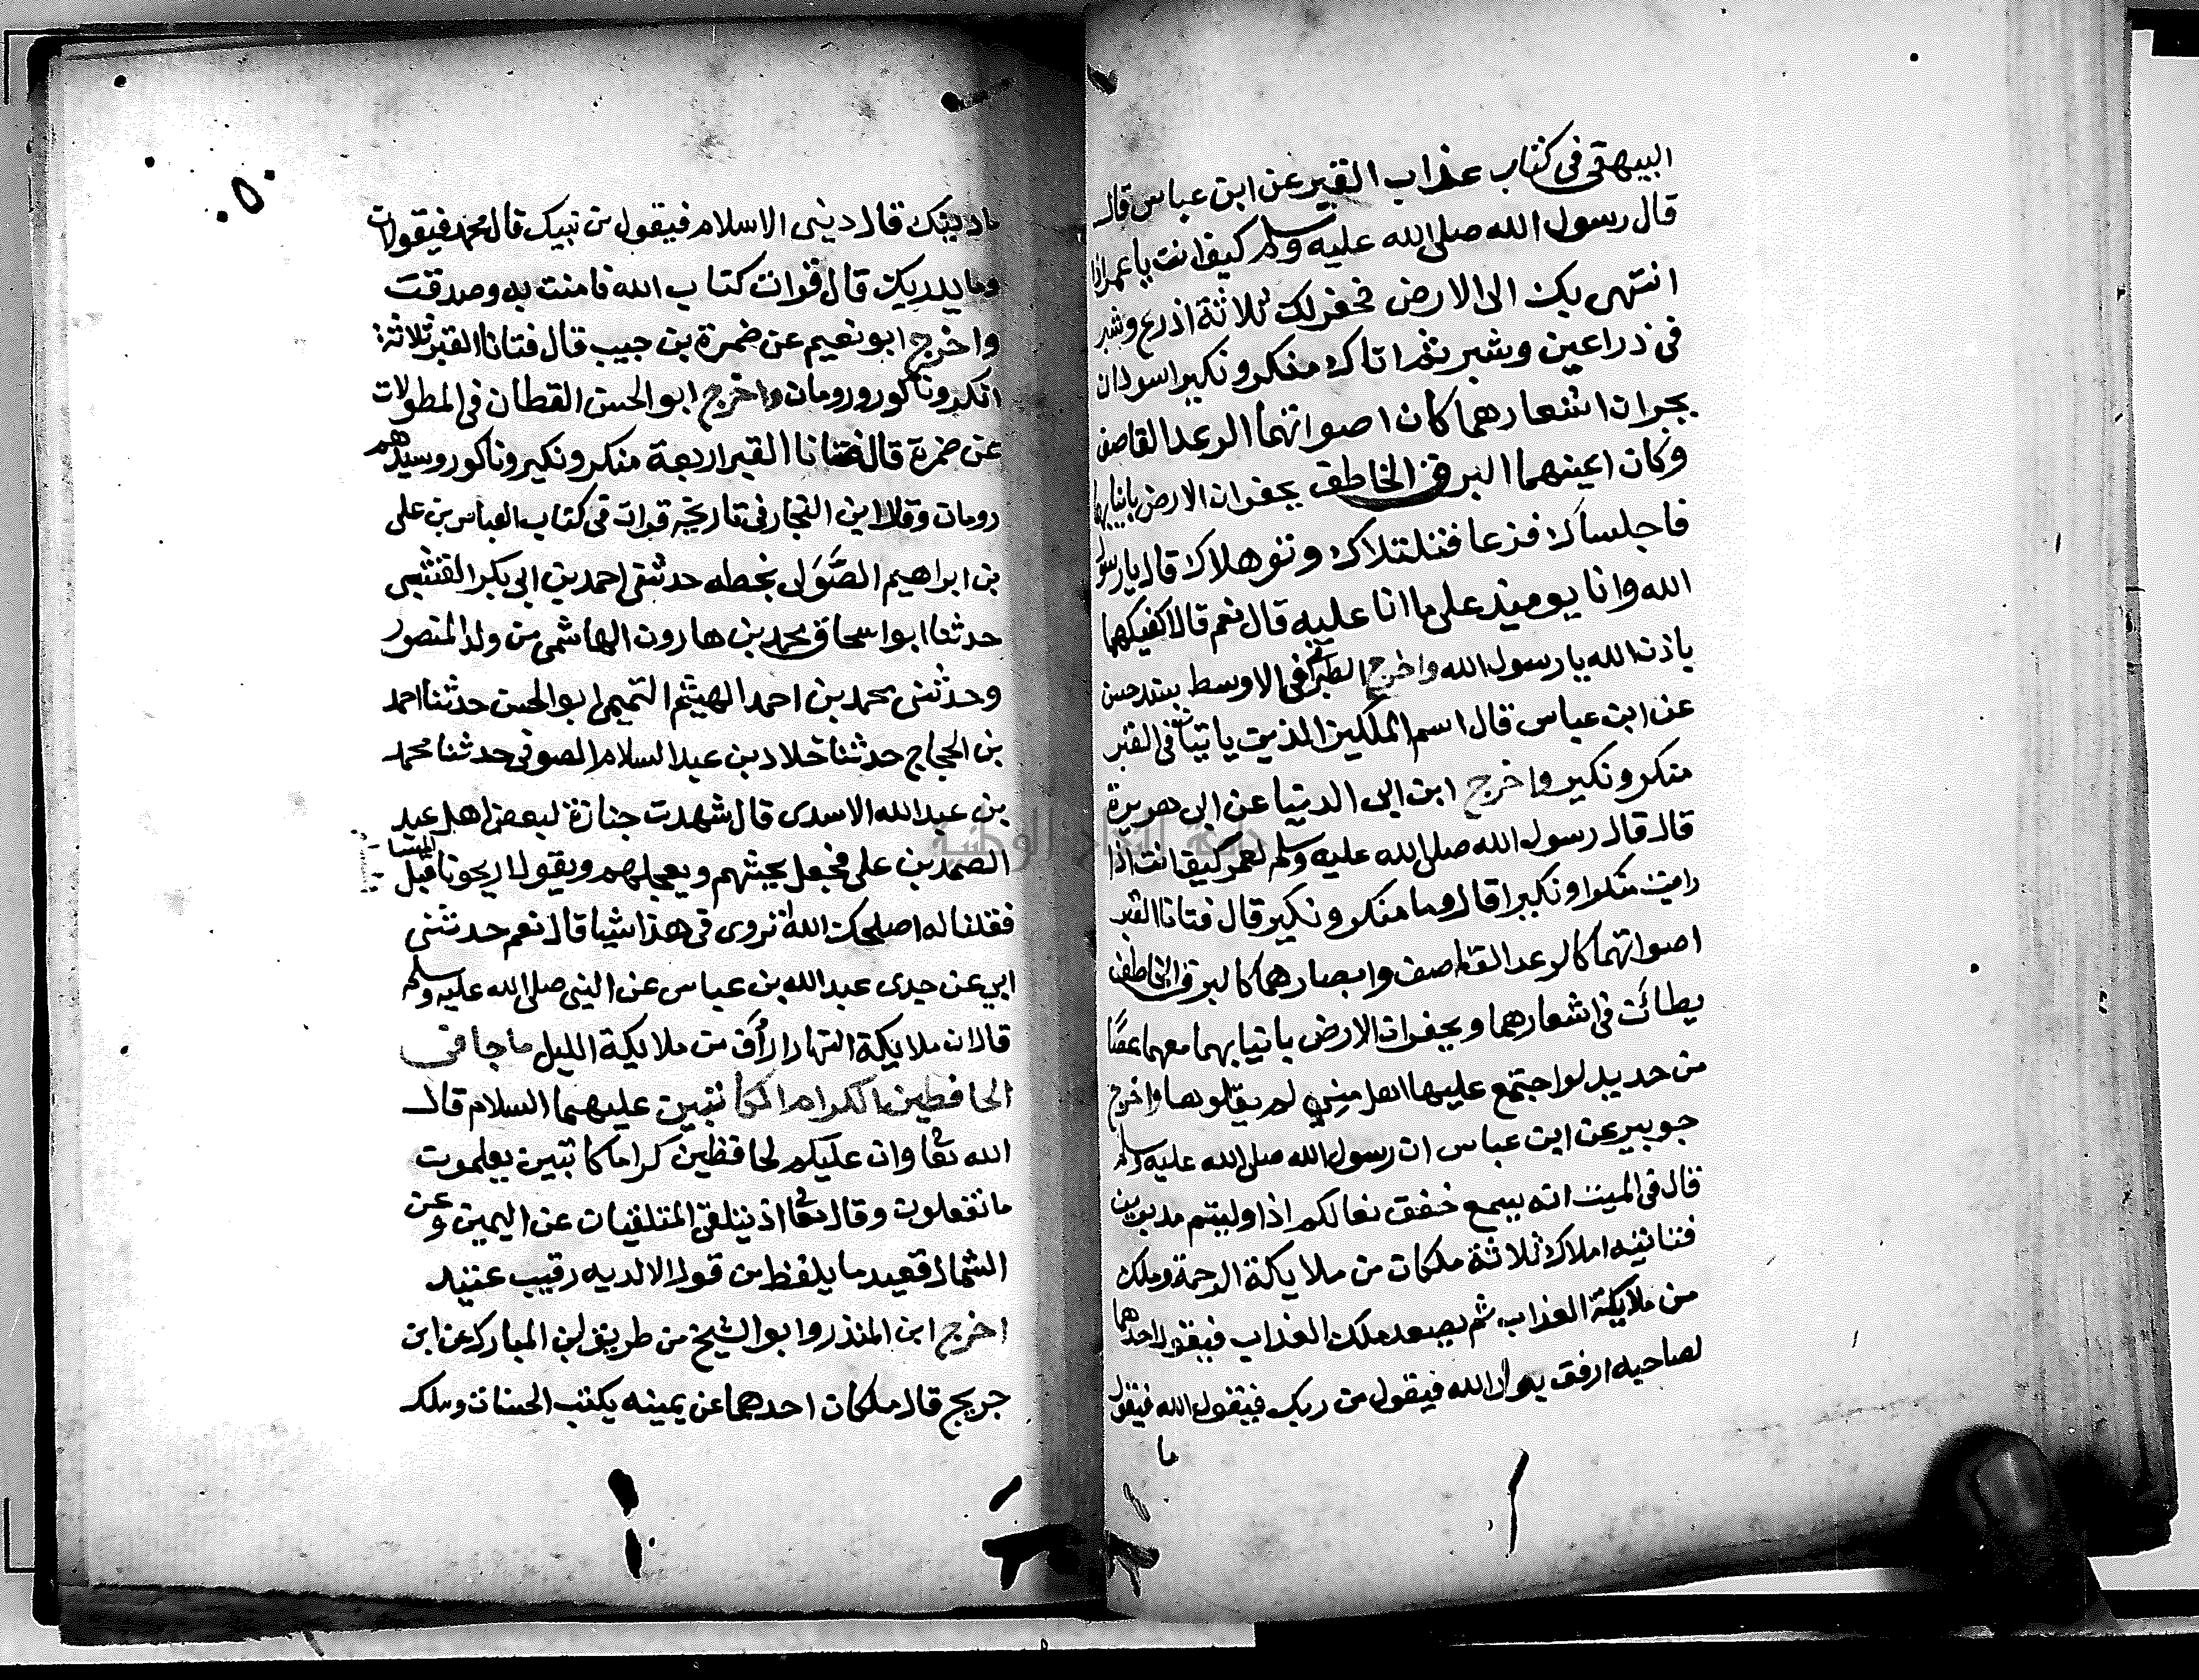 البيهقى فى كتاب عذاب القبر عن ابن عباس قال
قال رسول الله صلى الله عليه وسلم كيف انت يا عمر اذا
انتهى بك الى الارض فحفر لك ثلاثة اذرع وشبر
فى ذراعين وشبر ثم اتاك منكر ونكير اسودان
يجران اشعارهما كان اصواتهما الرعد القاصف
وكان اعينهما البرق الخاطف يحفران الارض بانيابهما
فاجلساك فزعا فتلتلاك وتوهلاك قال يا رسول
الله وانا يوميذ على ما انا عليه قال نعم قال اكفيكهما
باذن الله يا رسول الله واخرج الطبرانى فى الاوسط بسند حسن
عن ابن عباس قال اسم الملكين الذين ياتيان فى القبر
منكر ونكير واخرج ابن ابى الدنيا عن ابى هريرة
قال قال رسول الله صلى الله عليه وسلم لعمر كيف انت اذا
رايت منكرا ونكيرا قال وما منكر ونكير قال فتانا القبر
اصواتهما كالرعد القاصف وابصارهما كالبرق الخاطف
يطائن فى اشعارهما ويحفران الارض بانيابهما معهما عصًا
من حديد لو اجتمع عليها اهل منى لم يقلوها واخرج
جويبر عن ابن عباس ان رسول الله صلى الله عليه وسلم
قال فى الميت انه يسمع خفق نعالكم اذا وليتم مدبرين
فتاتيه املاك ثلاثة ملكان من ملايكة الرحمة وملك
من ملايكة العذاب ثم يصعد ملك العذاب فيقول احدهما
لصاحبه ارفق بولى الله فيقول من ربك فيقول الله فيقول
ما
٥٠
ما دينك قال دينى الاسلام فيقول من نبيك قال محمد فيقولان
وما يدريك قال قرات كتاب الله فامنت به وصدقت
واخرج ابو نعيم عن ضمرة بن حبيب قال فتانا القبر ثلاثة
انكر وناكور ورومان واخرج ابو الحسن القطان فى المطولات
عن ضمرة قال فتانا القبر اربعة منكر ونكير وناكور وسيدهم
رومان وقال ابن النجار فى تاريخه قرات فى كتاب العباس بن على
بن ابراهيم الصَّوَلى بخطه حدثنى احمد بن ابى بكر
حدثنا ابو اسحاق محمد بن هارون الهاشمى من ولد المنصور
وحدثنى محمد بن احمد الهيثم التميمى ابو الحسن حدثنا احمد
بن الحجاج حدثنا خلاد بن عبد السلام الصوفى حدثنا محمد
بن عبد الله الاسدى قال شهدت جنازة لبعض اهل عبد
الصمد بن على فجعل يحثهم ويعجلهم ويقول اريحونا قبل المسا
فقلنا له اصلحك الله تروى فى هذا شيا قال نعم حدثنى
ابى عن جدى عبد الله بن عباس عن النبى صلى الله عليه وسلم
قال ان ملايكة النهار ارأف من ملايكة الليل ما جا فى
الحافظين الكرام الكاتبين عليهما السلام قال
الله تعا وان عليكم لحافظين كراما كاتبين يعلمون
ما تفعلون وقال تعا اذ يتلقى المتلقيان عن اليمين وعن
الشمال قعيد ما يلفظ من قول الا لديه رقيب عتيد
اخرج ابن المنذر وابو الشيخ من طريق بن المبارك عن ابن
جريج قال ملكان احدهما عن يمينه يكتب الحسنات وملك
جامعة النجاح الوطنية